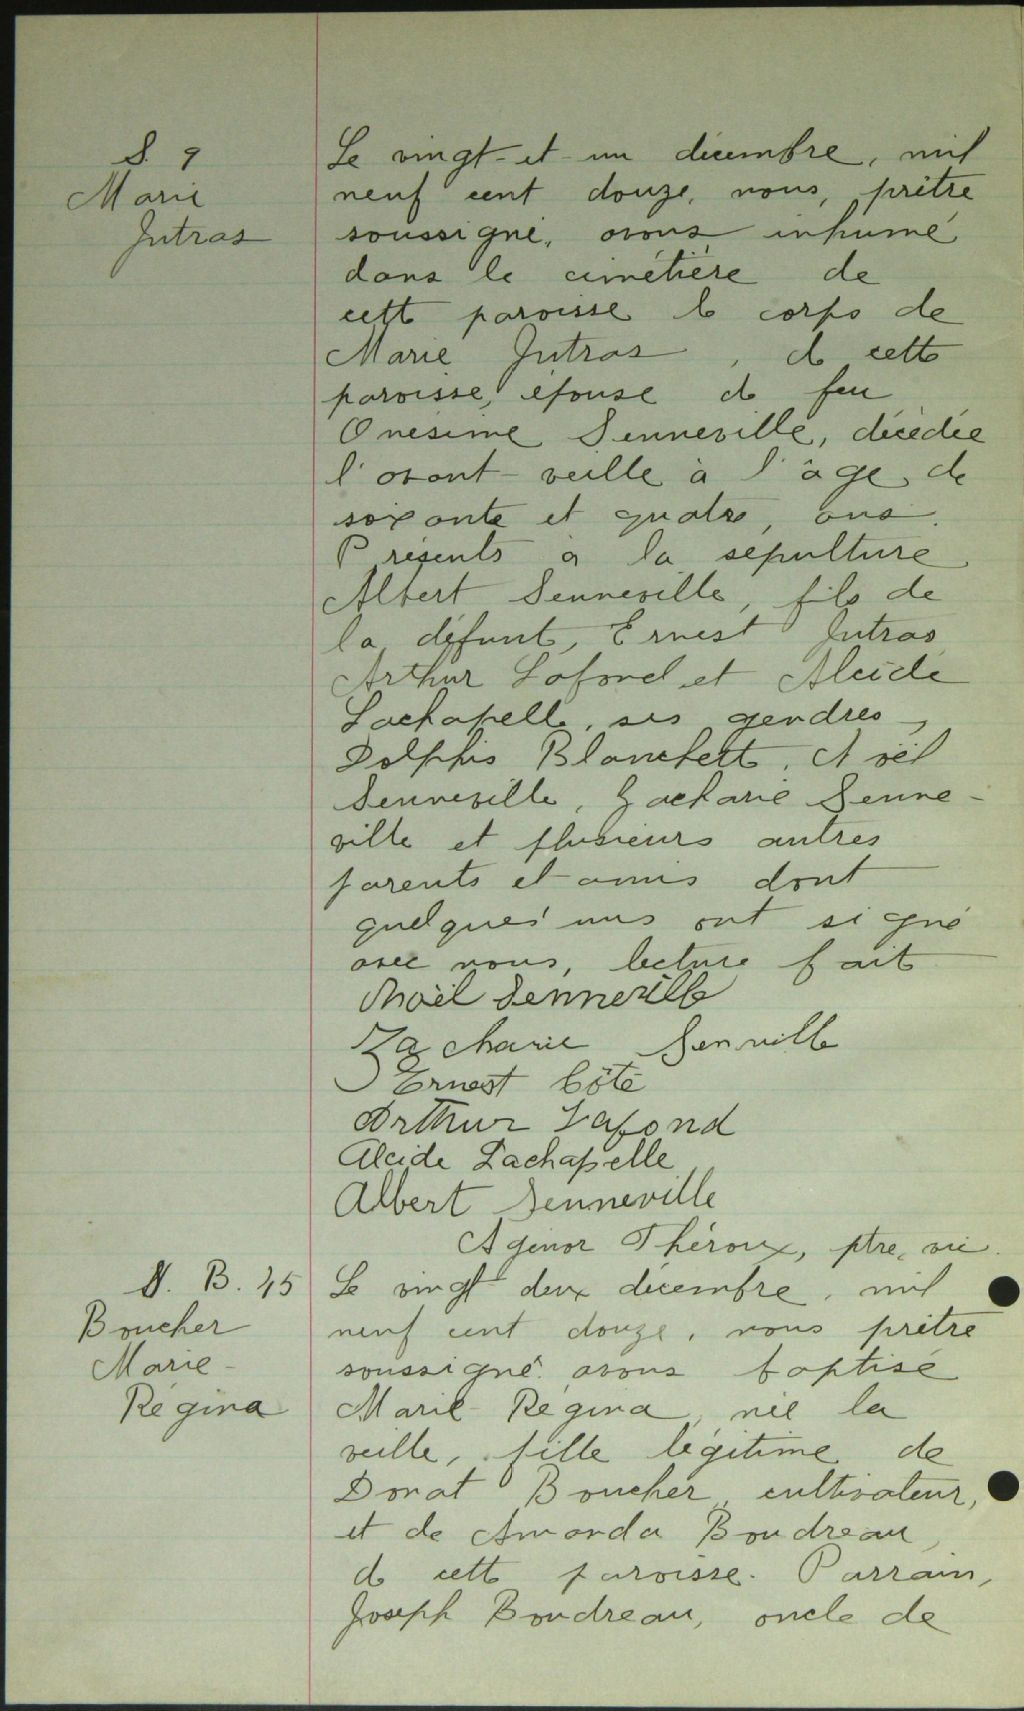 S. 9
Marie
Jutras
Le vingt-et-un décembre, mil
neuf cent douze, nous, prêtre
soussigné, avons inhumé
dans le cimétière de
cette paroisse le corps de
Marie Jutras, de cette
paroisse, épouse de feu
Onésime Senneville, décédée
l'avant-veille à l'âge de
soixante et quatre, ans.
Présents à la sépulture
Albert Senneville, fils de
la défunt, Ernest Jutras
Arthur Lafond et Alcide
Lachapelle, ses gendres,
Dolphis Blanchette, Noël
Senneville, Zacharie Senne-
ville et plusieurs autres
parents et amis dont
quelques'uns ont signé
avec nous, lecture faite
Noël Senneville
Zacharie Senville
Ernest Côté
Arthur Lafond
Alcide Lachapelle
Albert Senneville
Agénor Théroux, ptre, vic.
B. 45
Boucher
Marie-
Régina
Le vingt deux décembre, mil
neuf cent douze, nous prêtre
soussigné avons baptisé
Marie-Régina, née la
veille, fille légitime de
Donat Boucher, cultivateur,
et de Amanda Boudreau,
de cette paroisse. Parrain,
Joseph Boudreau, oncle de